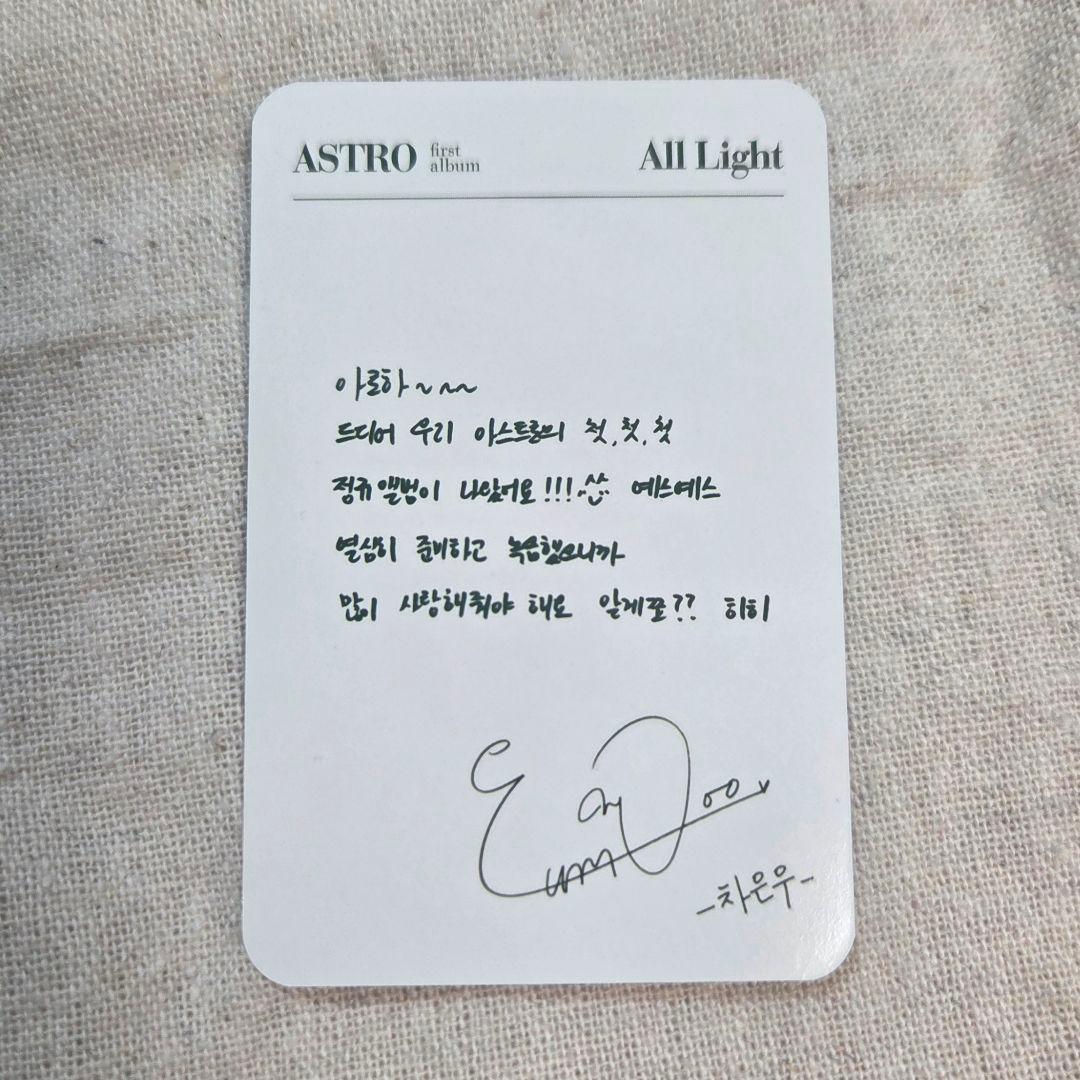 ASTRO first album All Light
아로하~~~
드디어 우리 아스트로의 첫,첫,첫
정규앨범이 나왔어요!!! ^^ 예스예스
열심히 준비하고 녹음했으니까
많이 사랑해줘야 해요 알게쪄?? 히히
-차은우-